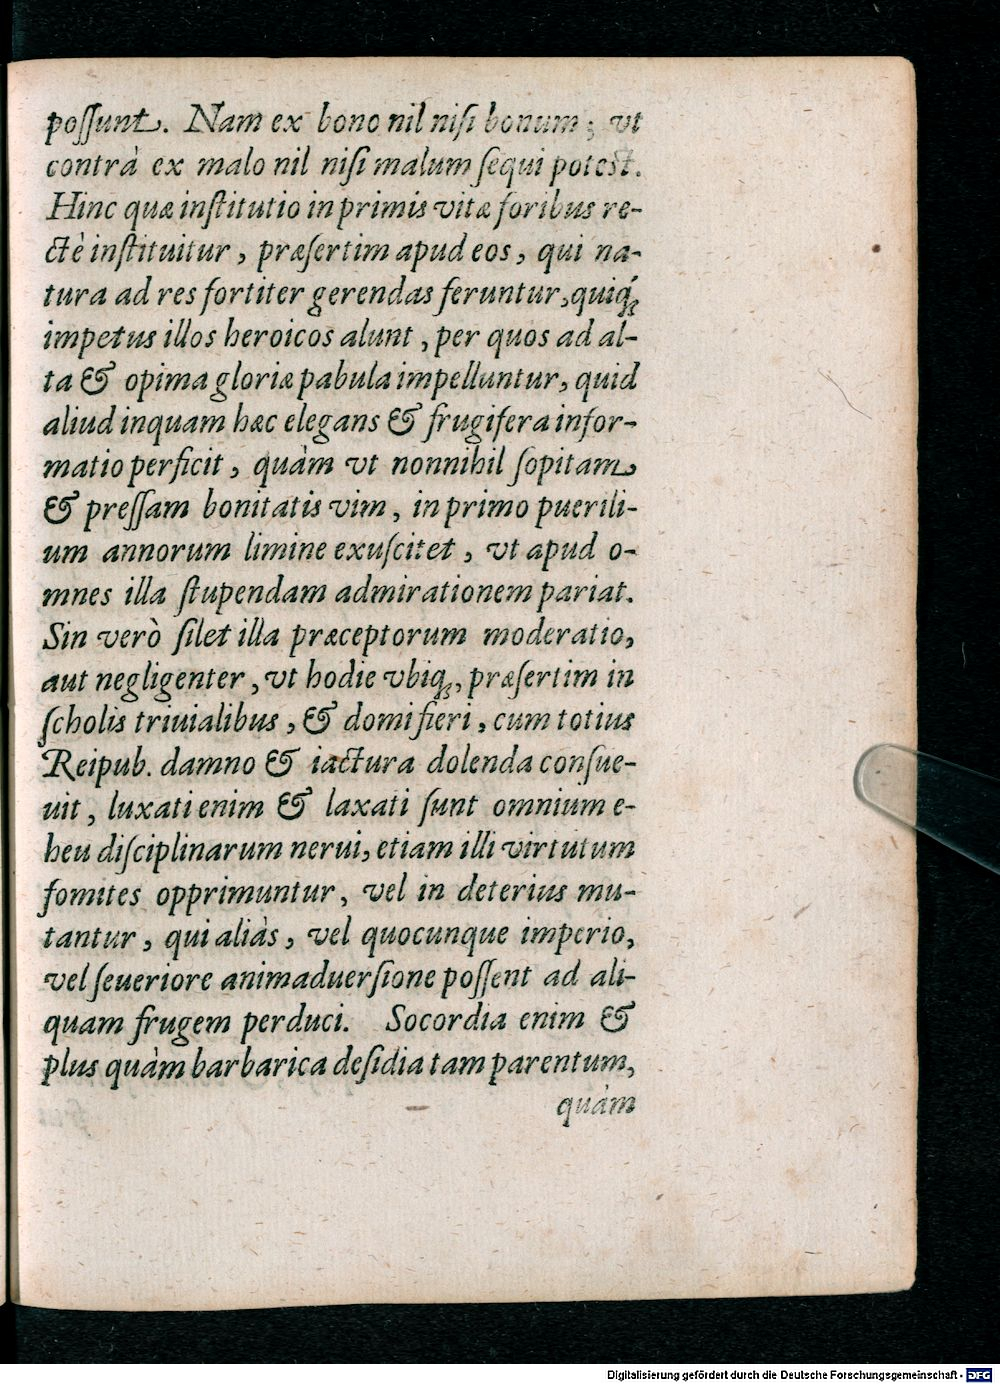 possunt. Nam ex bono nil nisi bonum; vt
contrà ex malo nil nisi malum sequi potest.
Hinc quæ institutio in primis vitæ foribus re-
ctè instituitur, præsertim apud eos, qui na-
tura ad res fortiter gerendas feruntur, quiq́;
impetus illos heroicos alunt, per quos ad al-
ta & opima gloriæ pabula impelluntur, quid
aliud inquam hæc elegans & frugifera infor-
matio perficit, quàm vt nonnihil sopitam,
& pressam bonitatis vim, in primo puerili-
um annorum limine exuscitet, vt apud o-
mnes illa stupendam admirationem pariat.
Sin verò silet illa præceptorum moderatio,
aut negligenter, vt hodie vbiq;, præsertim in
scholis triuialibus, & domi fieri, cum totius
Reipub. damno & iactura dolenda consue-
uit, luxati enim & laxati sunt omnium e-
heu disciplinarum nerui, etiam illi virtutum
fomites opprimuntur, vel in deterius mu-
tantur, qui aliàs, vel quocunque imperio,
vel seueriore animaduersione possent ad ali-
quam frugem perduci. Socordia enim &
plus quàm barbarica desidia tam parentum,
quàm
Digitalisierung gefördert durch die Deutsche Forschungsgemeinschaft - DFG